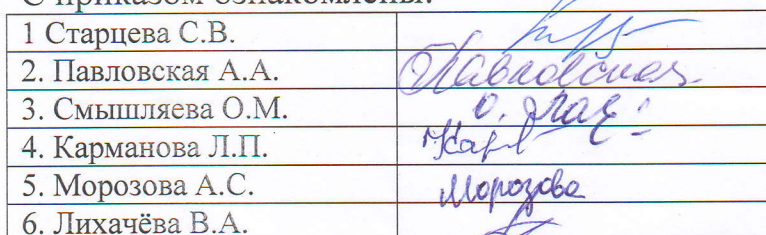 С приказом ознакомлены:
1 Старцева С.В.
2. Павловская А.А. Павловская
3. Смышляева О.М.
4. Карманова Л.П. Кар
5. Морозова А.С. Морозова
6. Лихачёва В.А.